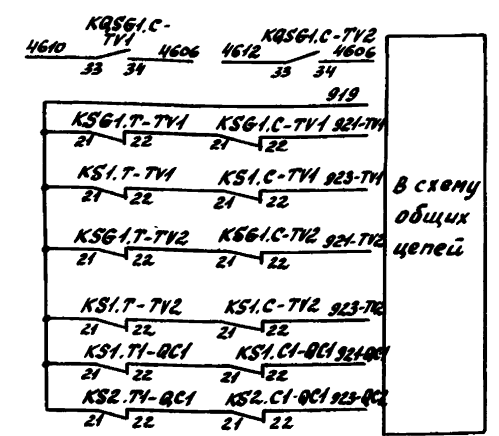 KQSG1.C-
TV1
4610 4606
33 34
KQSG1.C-TV2
4612 4606
33 34
919
KSG1.T-TV1 KSG1.C-TV1 921-TV1
21 22 21 22
KS1.T-TV1 KS1.C-TV1 923-TV1
21 22 21 22
KSG1.T-TV2 KSG1.C-TV2 921-TV2
21 22 21 22
KS1.T-TV2 KS1.C-TV2 923-TV2
21 22 21 22
KS1.T1-QC1 KS1.C1-QC1 921-QC1
21 22 21 22
KS2.T1-QC1 KS2.C1-QC1 923-QC2
21 22 21 22
В схему
общих
цепей